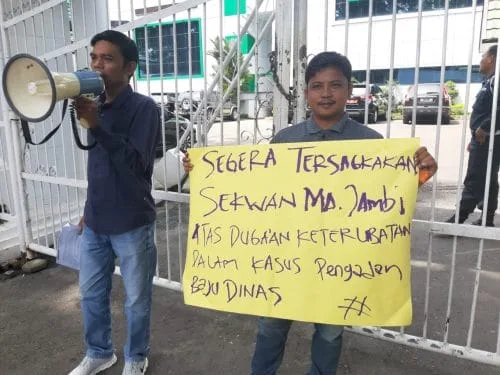 SEGERA TERSAGKAKAN
SEKWAN MA. JAMBI
ATAS DUGAAN KETERLIBATAN
DALAM KASUS PENGADAAN
BAJU DINAS
#